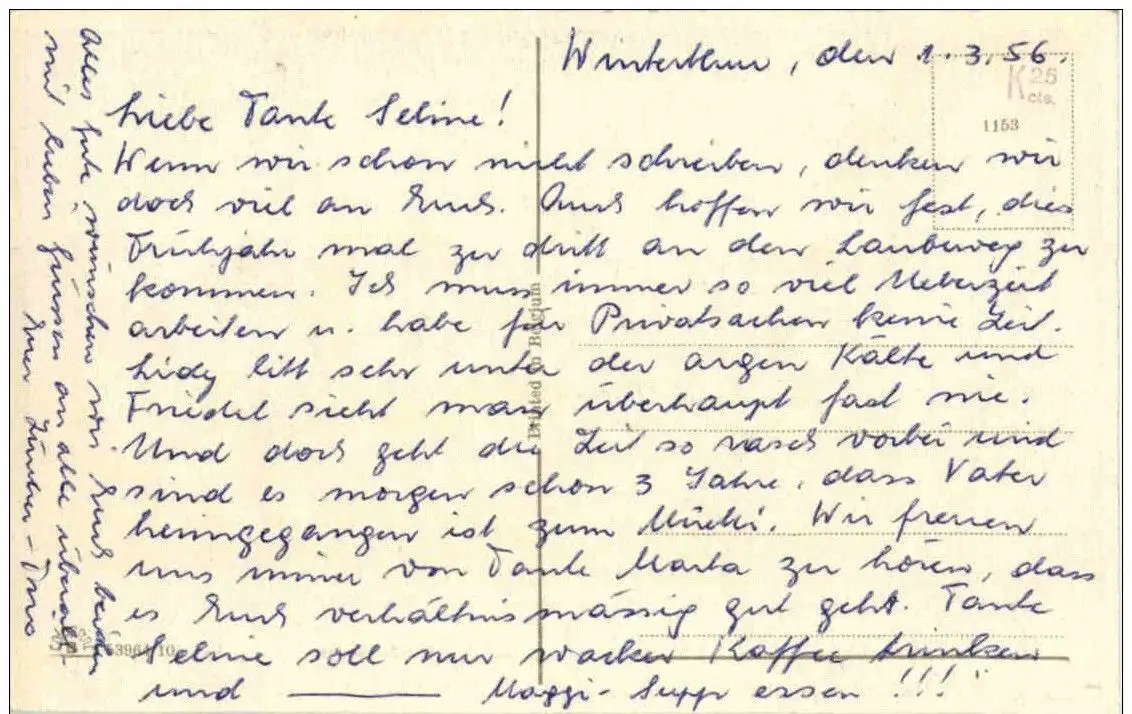 Winterthur, den 1.3.56.
K 25
cts.
1153
Liebe Tante Seline!
Wenn wir schon nicht schreiben, denken wir
doch viel an Euch. Auch hoffen wir fest, dies
Frühjahr mal zu dritt an den Laubeweg zu
kommen. Ich muss immer so viel Ueberzeit
arbeiten u. habe für Privatsachen keine Zeit.
Lidy litt sehr unter der argen Kälte und
Friedel sieht man überhaupt fast nie.
Und doch geht die Zeit so rasch vorbei und
sind es morgen schon 3 Jahre, dass Vater
heimgegangen ist zum Müeti. Wir freuen
uns immer von Tante Marta zu hören, dass
es Euch verhältnismässig gut geht. Tante
Seline soll nur wacker Kaffee trinken
und Maggi-Suppe essen!!!
Alles Gute wünschen wir Euch beiden
mit lieben Grüssen an alle überall
Euer
Printed in Belgium